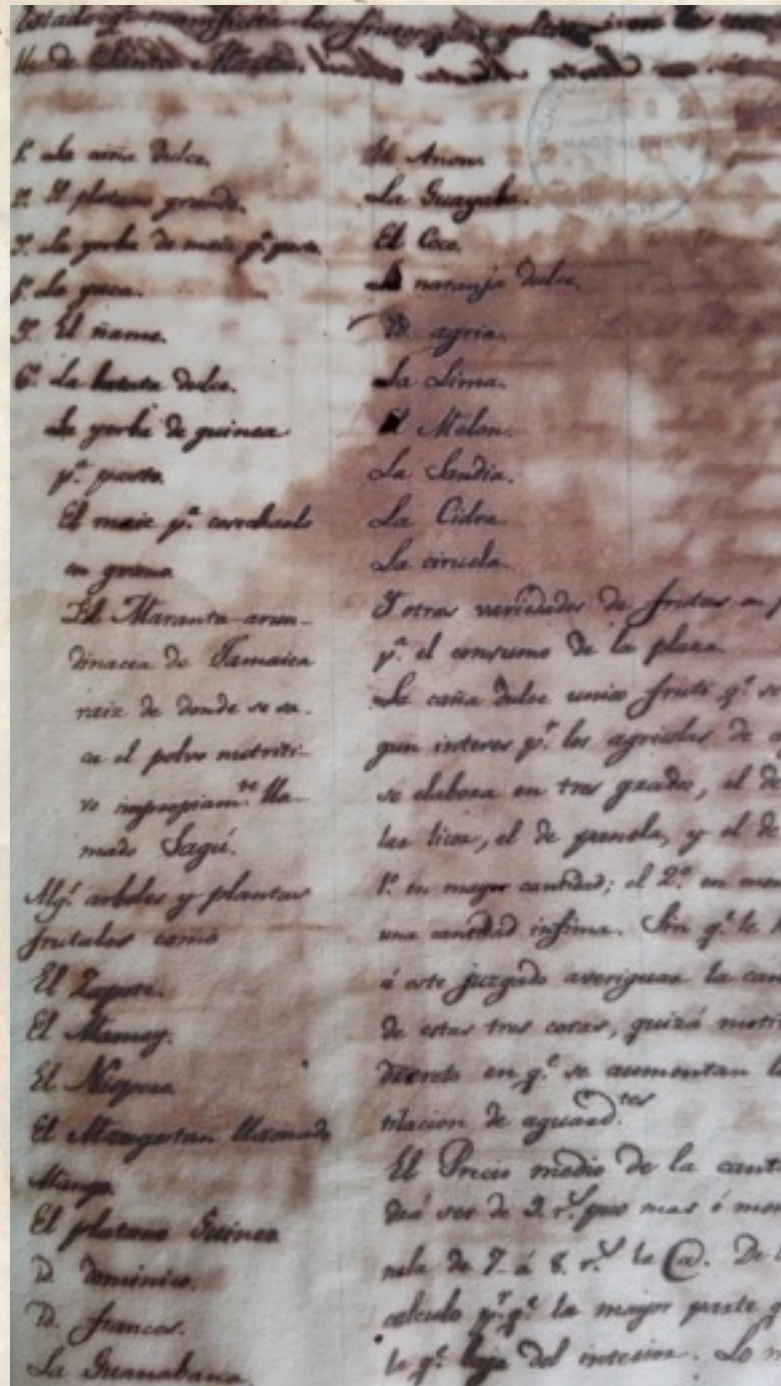 Estado q.e manifiesta los frutos q.e se cultivan
tt.o de Santa Marta.
1.o La caña dulce.
2.o El platano grande.
3.o La yerba de maiz p.a pasto.
4.o La yuca.
5.o El ñame.
6.o La batata dulce.
La yerba de guinea
p.a pasto.
El maiz p.a cosecharlo
en grano
El Maranta-arun-
dinacea de Jamaica
raiz de donde se sa-
ca el polvo nutriti-
vo impropiam.te lla-
mado Sagú.
Alg.s arboles y plantas
frutales como
El Zapote.
El Mamey.
El Nispero
El Mangostan llamado
Mango.
El platano Guineo
D. dominico.
D. francos.
La Guanabana
El Anon
La Guayaba.
El Coco.
La naranja dulce.
D. agria.
La Lima.
El Melon.
La Sandia.
La Cidra
La ciruela.
Y otras variedades de frutas en p
p.a el consumo de la plaza
La caña dulce unico fruto q.e
gun interes p.a los agricolas de
se elabora en tres grados, el de
lar licor, el de panela, y el de
1.o en mayor cantidad; el 2.o en
una cantidad infima. Sin q.e le
á este juzgado averiguar la can
de estas tres cosas, quizá moti
Decreto en q.e se aumentan
tilacion de aguard.tes
El Precio medio de la cant
drá ser de 2 r.s poco mas ó men
nela de 7 á 8 r.s la @. De
calculo p.r q.e la mayor parte
la q.e baja del interior. Lo